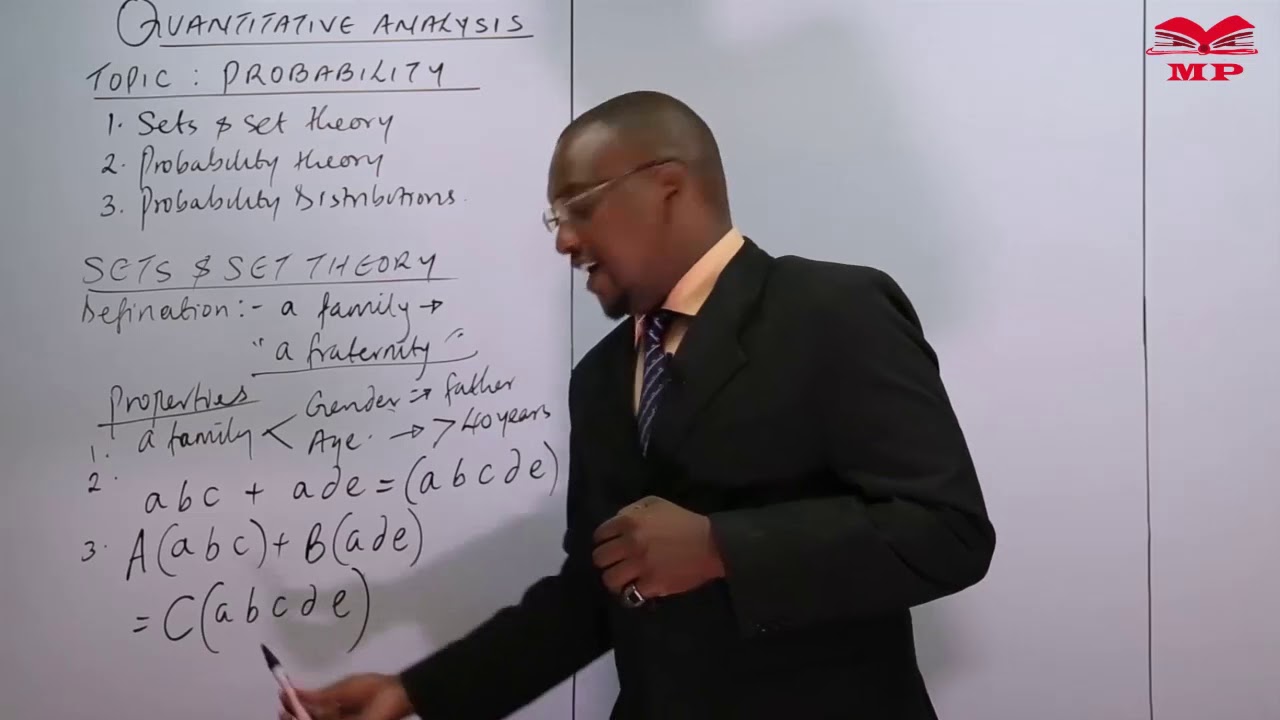 QUANTITATIVE ANALYSIS
TOPIC : PROBABILITY
1. Sets & set theory
2. Probability theory
3. Probability Distributions.
SETS & SET THEORY
Defination:- a family →
"a fraternity"
Properties
1. a family < Gender => father
Age. → > 40 years
2. abc + ade = (abcde)
3. A(abc) + B(ade)
= C(abcde)
MP